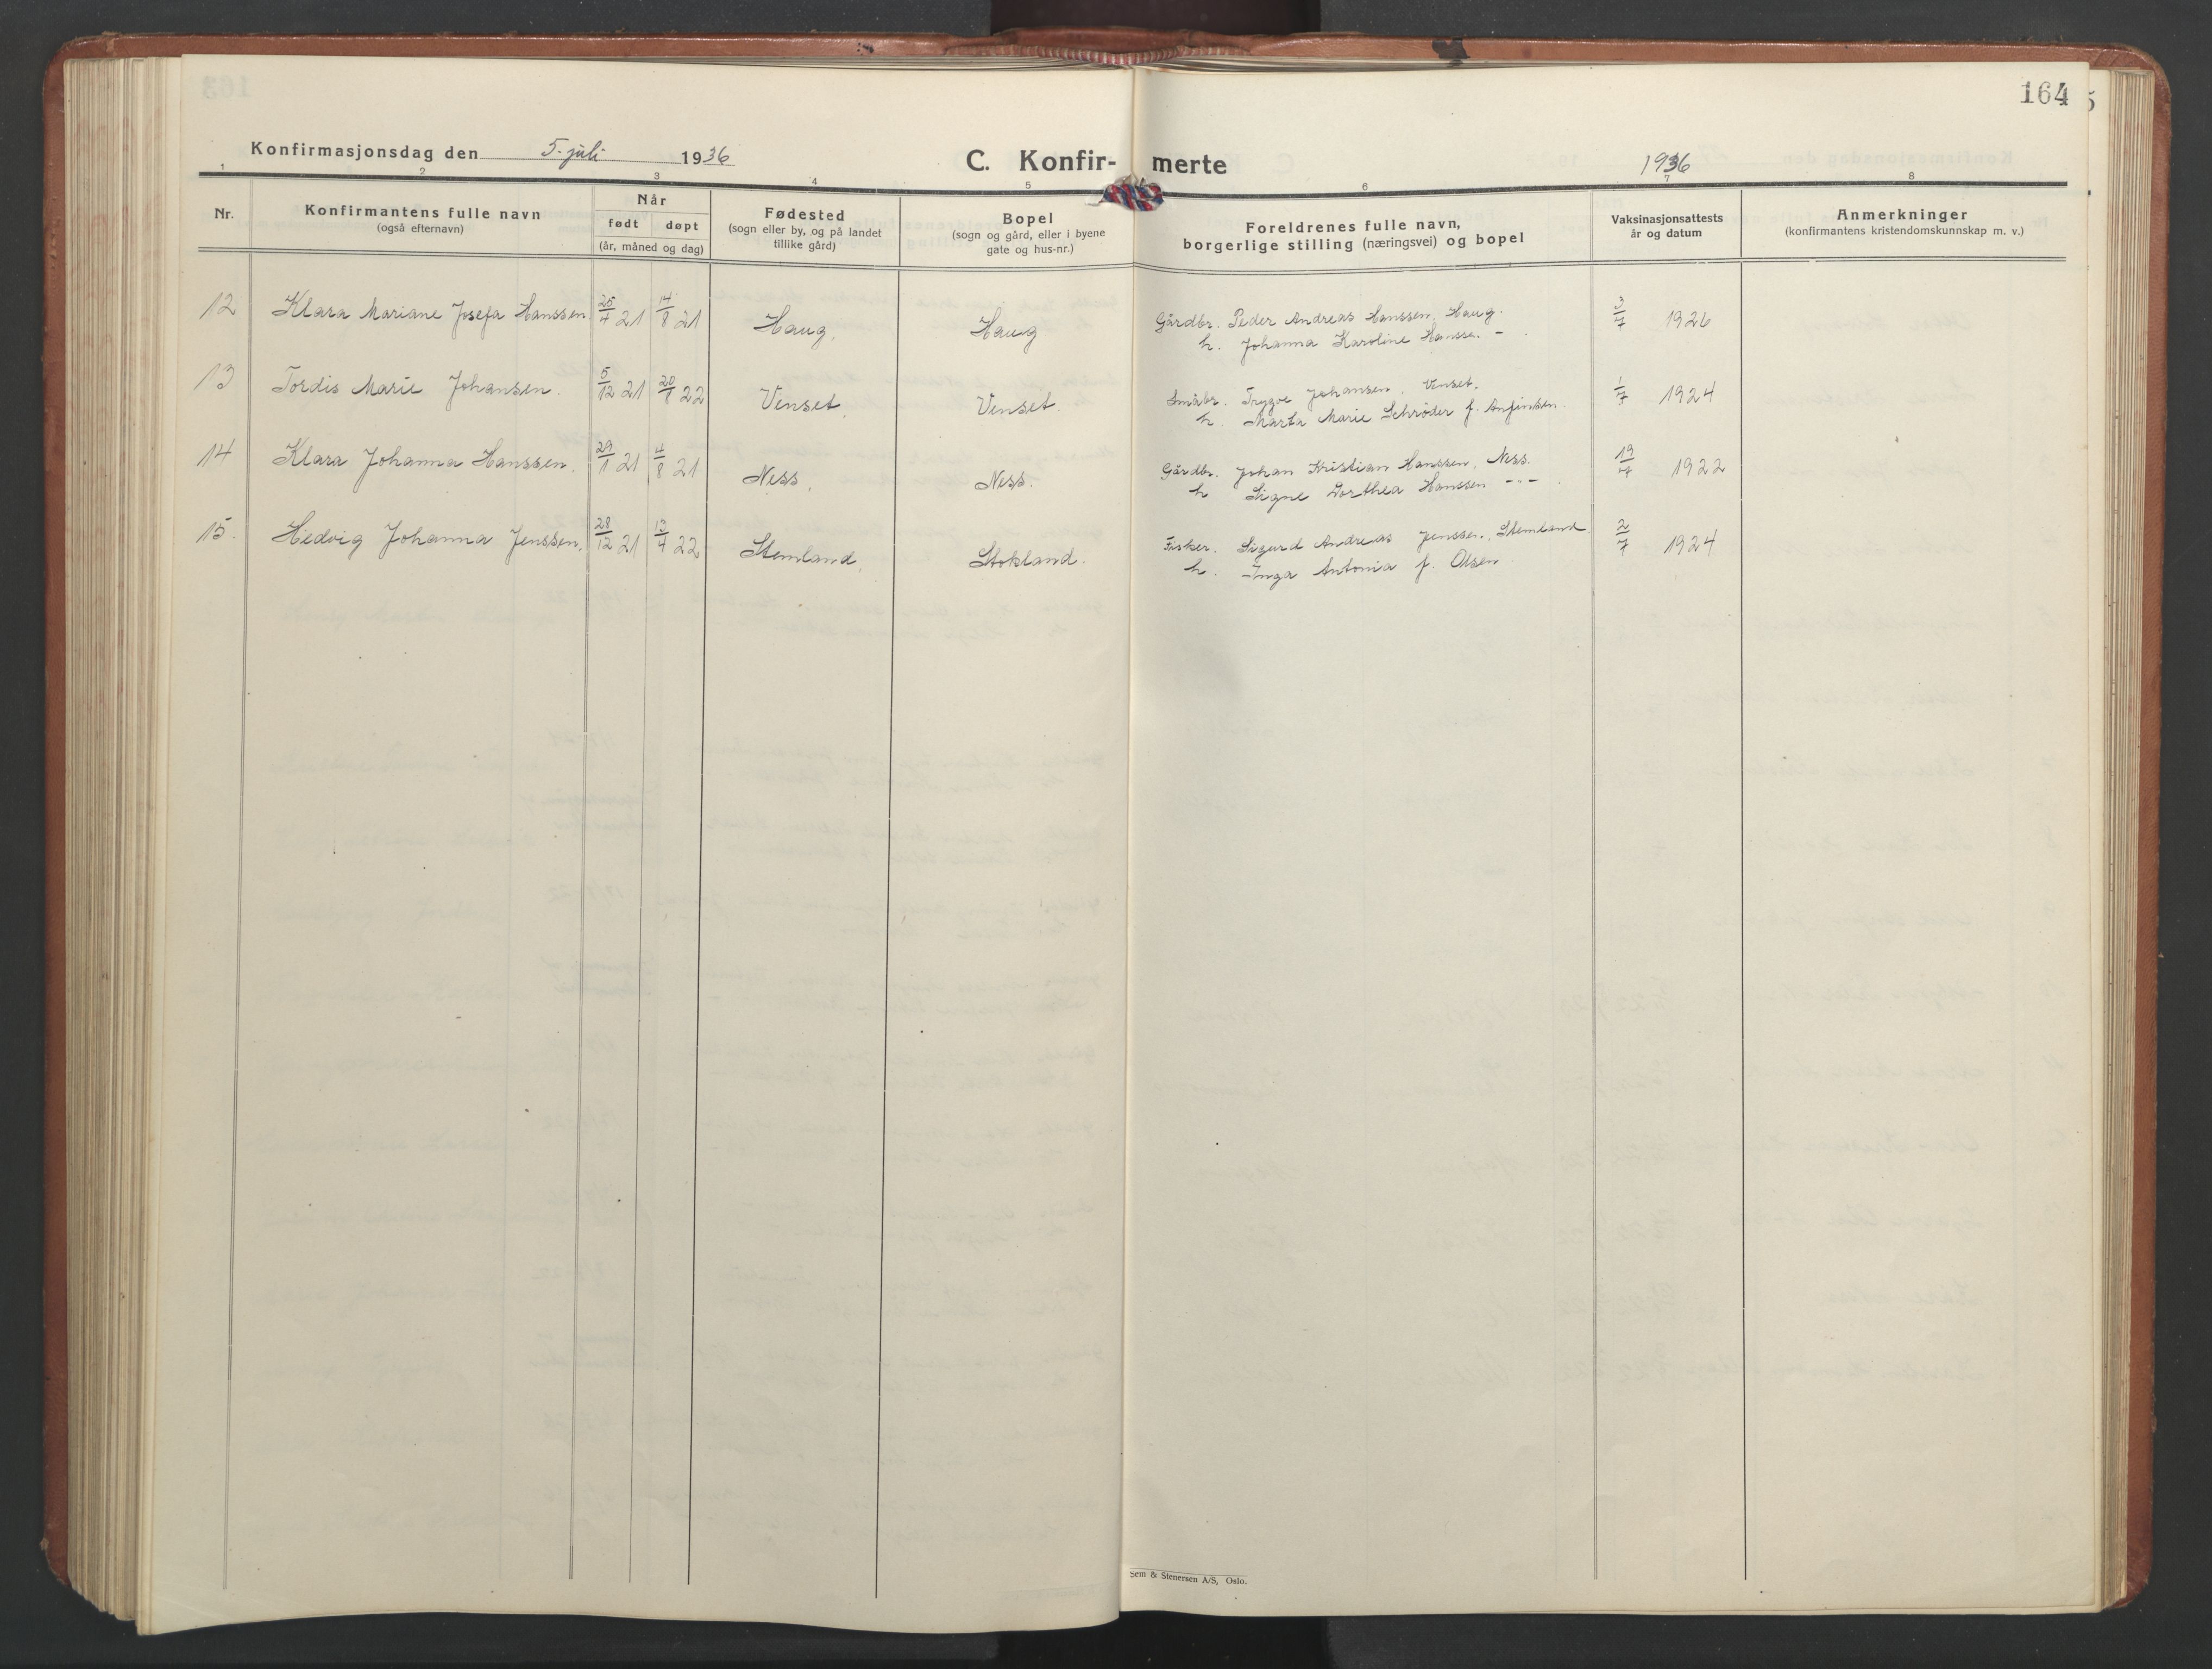 164
Konfirmasjonsdag den 5. juli 1936
C. Konfir- merte
1936
1 2 3 4 5 6 7 8
Nr.
Konfirmantens fulle navn
(også efternavn)
Når
født døpt
(år, måned og dag)
Fødested
(sogn eller by, og på landet
tillike gård)
Bopel
(sogn og gård, eller i byene
gate og hus-nr.)
Foreldrenes fulle navn,
borgerlige stilling (næringsvei) og bopel
Vaksinasjonsattests
år og datum
Anmerkninger
(konfirmantens kristendomskunnskap m. v.)
12 Klara Mariane Josefa Hanssen 25/4 21 14/8 21 Haug. Haug Gårdbr. Peder Andreas Hanssen, Haug. 3/7 1926
h. Johanna Karoline Hansse. -
13 Tordis Marie Johansen. 5/12 21 20/8 22 Venset. Venset. Småbr. Trygve Johansen, Venset. 1/7 1924
h. Marta Marie Schrøder f. Anfinsen.
14 Klara Johanna Hanssen. 29/1 21 4/8 21 Ness. Ness. Gårdbr. Johan Kristian Hanssen, Ness. 19/7 1922
h Signe Dorthea Hanssen - - -
15. Hedvig Johanna Jenssen. 28/12 21 17/4 22 Stemland. Stokland. Fisker. Sigurd Andreas Jenssen, Stemland 2/7 1924
h. Inga Antonia f. Olsen
Sem & Stenersen A/S, Oslo.